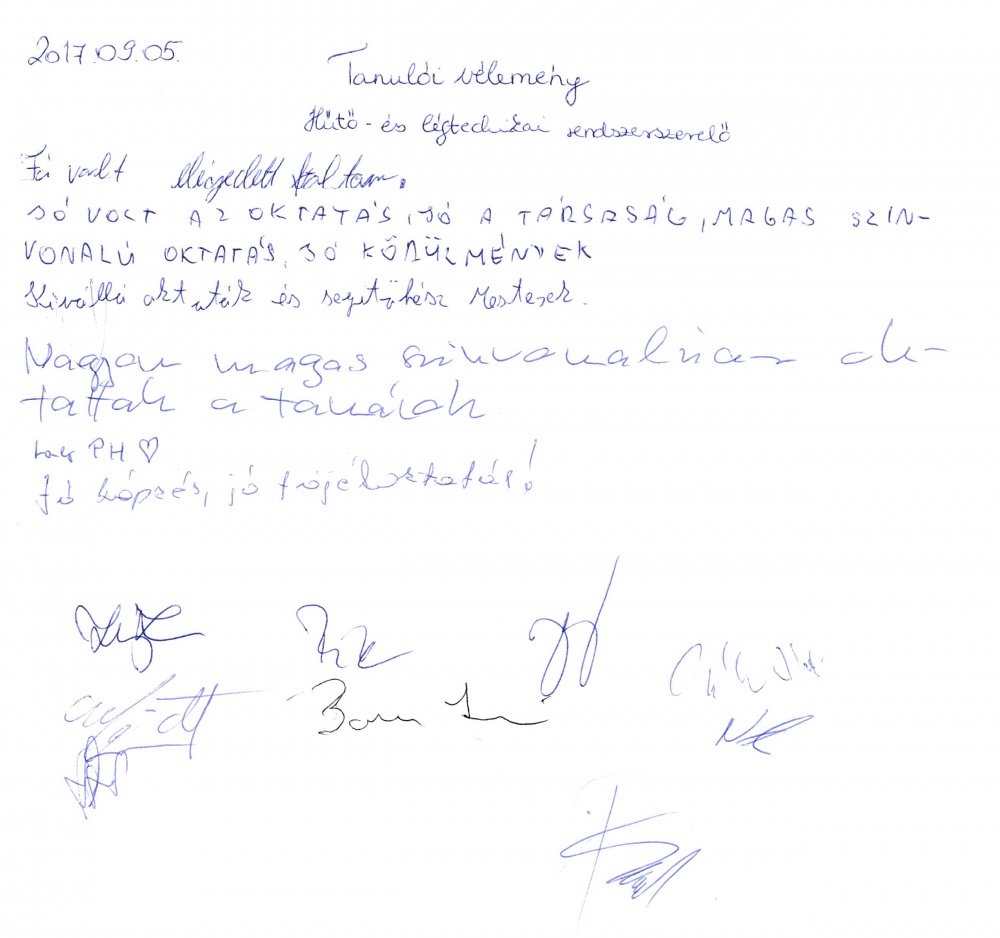 2017.09.05.
Tanulói vélemény
Hűtő- és légtechikai rendszerszerelő
Jó volt elégedett voltam.
JÓ VOLT AZ OKTATÁS, JÓ A TÁRSASÁG, MAGAS SZIN-
VONALÚ OKTATÁS, JÓ KÖRÜLMÉNYEK
Kiválló oktatók és segitőkész Mesterek.
Nagyon magas szinvonalúan ok-
tattak a tanárok
PH ♡
Jó képzés, jó tájékoztatás!